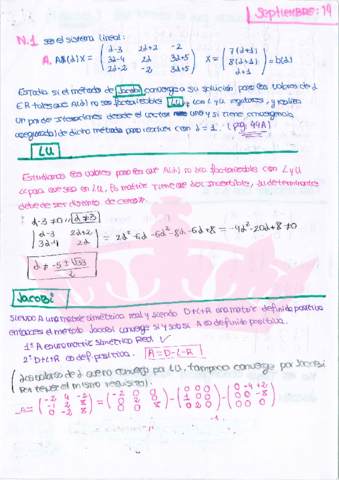 Septiembre: 19
N.1 sea el sistema lineal:
A. A(d)X = ( d-3 2d+2 -2 ) X = ( 7(d+1) )
( 3d-4 2d 3d+5 ) ( 8(d+1) ) = b(d)
( 2d-2 -2 3d+5 ) ( d+1 )
Estudia si el método de Jacobi converge a su solución para los valores de d
∈ R tales que A(d) no sea factorizable LU, con L y U regulares, y realiza
un par de iteraciones desde el vector nulo y si tiene convergencia
asegurada de dicho método para resolver con d = 1. (pg. 44A)
LU
Estudiamos los valores para los que A(d) no sea factorizable con L y U
para que sea en LU, la matriz tiene que ser invertible, su determinante
debe de ser distinto de cero.
d-3 ≠ 0 // d ≠ 3
| d-3 2d+2 |
| 3d-4 2d | = 2d² - 6d - 6d² - 8d - 6d + 8 = -4d² - 20d + 8 ≠ 0
d ≠ -5 ± √33 / 2
Jacobi
Siendo A una matriz simétrica real y siendo D+L+R una matriz definido positiva
entonces el metodo Jacobi converge si y solo si A es definido positiva.
1º A es una matriz simétrica Real ✓
2º D+L+R es def. positiva. A = D-L-R
(los valores de d que no converja por LU, tampoco converge por Jacobi
por tener el mismo requisito).
A = ( -2 4 -2 ) = ( -2 0 0 ) - ( 0 0 0 ) - ( 0 -4 +2 )
( -1 2 8 ) ( 0 2 0 ) ( 1 0 0 ) ( 0 0 -8 )
( 0 -2 8 ) ( 0 0 8 ) ( 0 2 0 ) ( 0 0 0 )